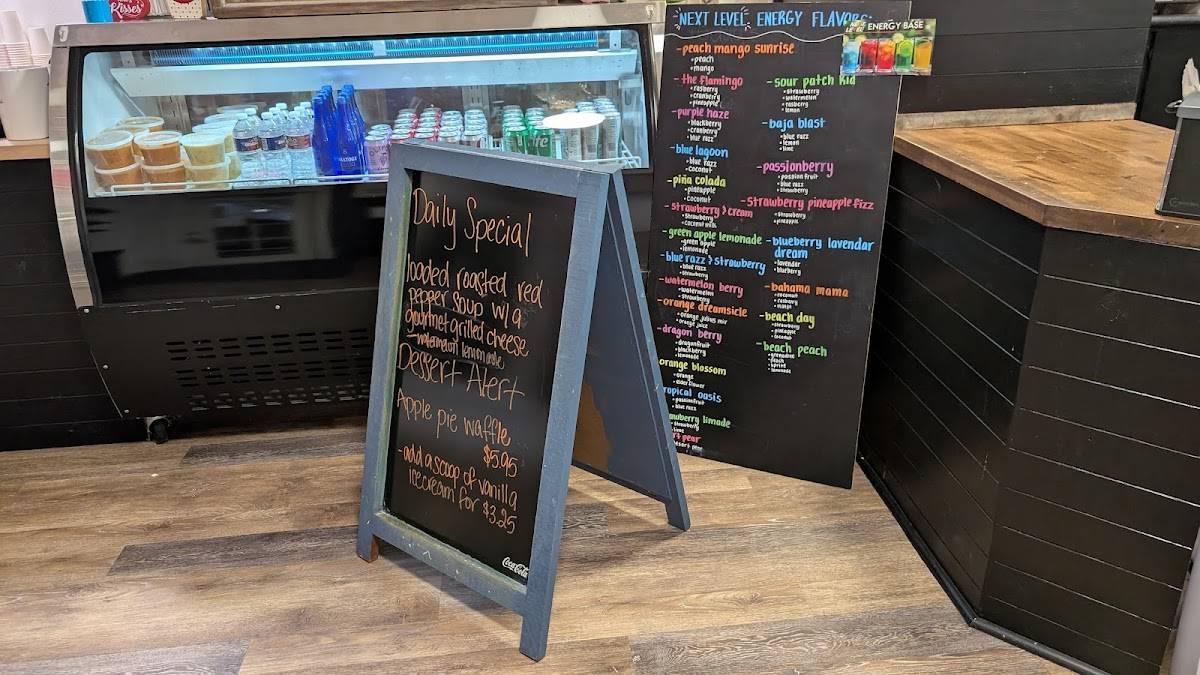 Kisses
Daily Special
loaded roasted red
pepper soup w/ a
gourmet grilled cheese
-watermelon lemonade
Dessert Alert
Apple pie waffle
$5.95
-add a scoop of vanilla
icecream for $3.25
Coca-Cola
NEXT LEVEL ENERGY FLAVORS:
ENERGY BASE
-peach mango sunrise
•peach
•mango
-the flamingo
•rasberry
•cranberry
•pineapple
-purple haze
•blackberry
•cranberry
•blue razz
-blue lagoon
•blue razz
•coconut
-piña colada
•pineapple
•coconut
-strawberry & cream
•strawberry
•coconut milk
-green apple lemonade
•green apple
•lemonade
-blue razz & strawberry
•blue razz
•strawberry
-watermelon berry
•watermelon
•strawberry
-orange dreamsicle
•orange julius mix
•orange juice
-dragon berry
•dragonfruit
•blackberry
•lemonade
orange blossom
•orange
•elderflower
tropical oasis
•passionfruit
•blue razz
limade
•strawberry
•lime
pear
-sour patch kid
•strawberry
•watermelon
•rasberry
•lemon
-baja blast
•blue razz
•lemon
•lime
-passionberry
•passion fruit
•blue razz
•strawberry
-strawberry pineapple fizz
•strawberry
•pineapple
-blueberry lavendar
dream
•lavender
•blueberry
-bahama mama
•coconut
•rasberry
•mango
-beach day
•strawberry
•pineapple
•coconut
-beach peach
•grenadine
•peach
•sprite
•lemonade